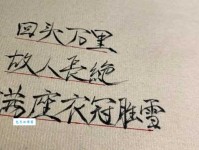 回头万里
故人長絶
满座衣冠胜雪